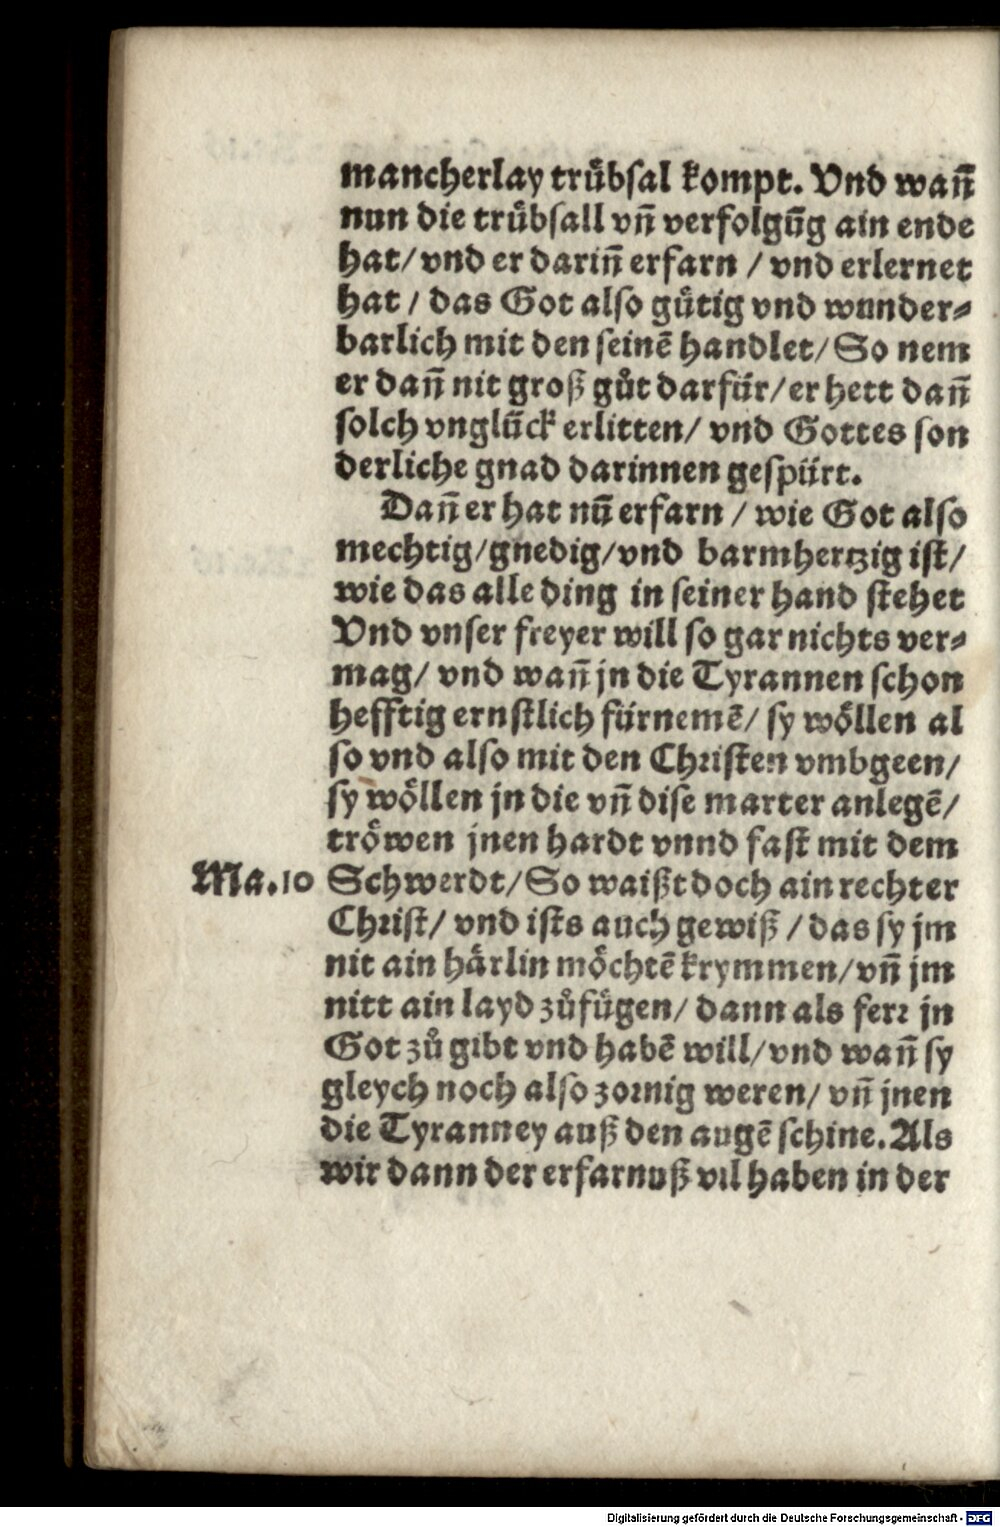 mancherlay truͤbſal kompt. Vnd wañ
nun die truͤbſall vñ verfolgũg ain ende
hat/ vnd er dariñ erfarn / vnd erlernet
hat / das Got alſo guͤtig vnd wunder⸗
barlich mit den ſeinẽ handlet/ So nem
er dañ nit groß guͦt darfür/ er hett dañ
ſolch vnglũck erlitten/ vnd Gottes ſon
derliche gnad darinnen geſpürt.
Dañ er hat nũ erfarn / wie Got alſo
mechtig/gnedig/vnd barmhertzig iſt/
wie das alle ding in ſeiner hand ſtehet
Vnd vnſer freyer will ſo gar nichts ver⸗
mag/ vnd wañ jn die Tyrannen ſchon
hefftig ernſtlich fürnemẽ/ ſy woͤllen al
ſo vnd alſo mit den Chꝛiſten vmbgeen/
ſy woͤllen jn die vñ diſe marter anlegẽ/
troͤwen jnen hardt vnnd faſt mit dem
Ma.10 Schwerdt/ So waißt doch ain rechter
Chꝛiſt/ vnd iſts auch gewiß / das ſy jm
nit ain haͤrlin moͤchtẽ krymmen/ vñ jm
nitt ain layd zuͦfuͤgen/ dann als ferꝛ jn
Got zuͦ gibt vnd habẽ will/ vnd wañ ſy
gleych noch alſo zoꝛnig weren/ vñ jnen
die Tyranney auß den augẽ ſchine. Als
wir dann der erfarnuß vil haben in der
Digitalisierung gefördert durch die Deutsche Forschungsgemeinschaft - DFG